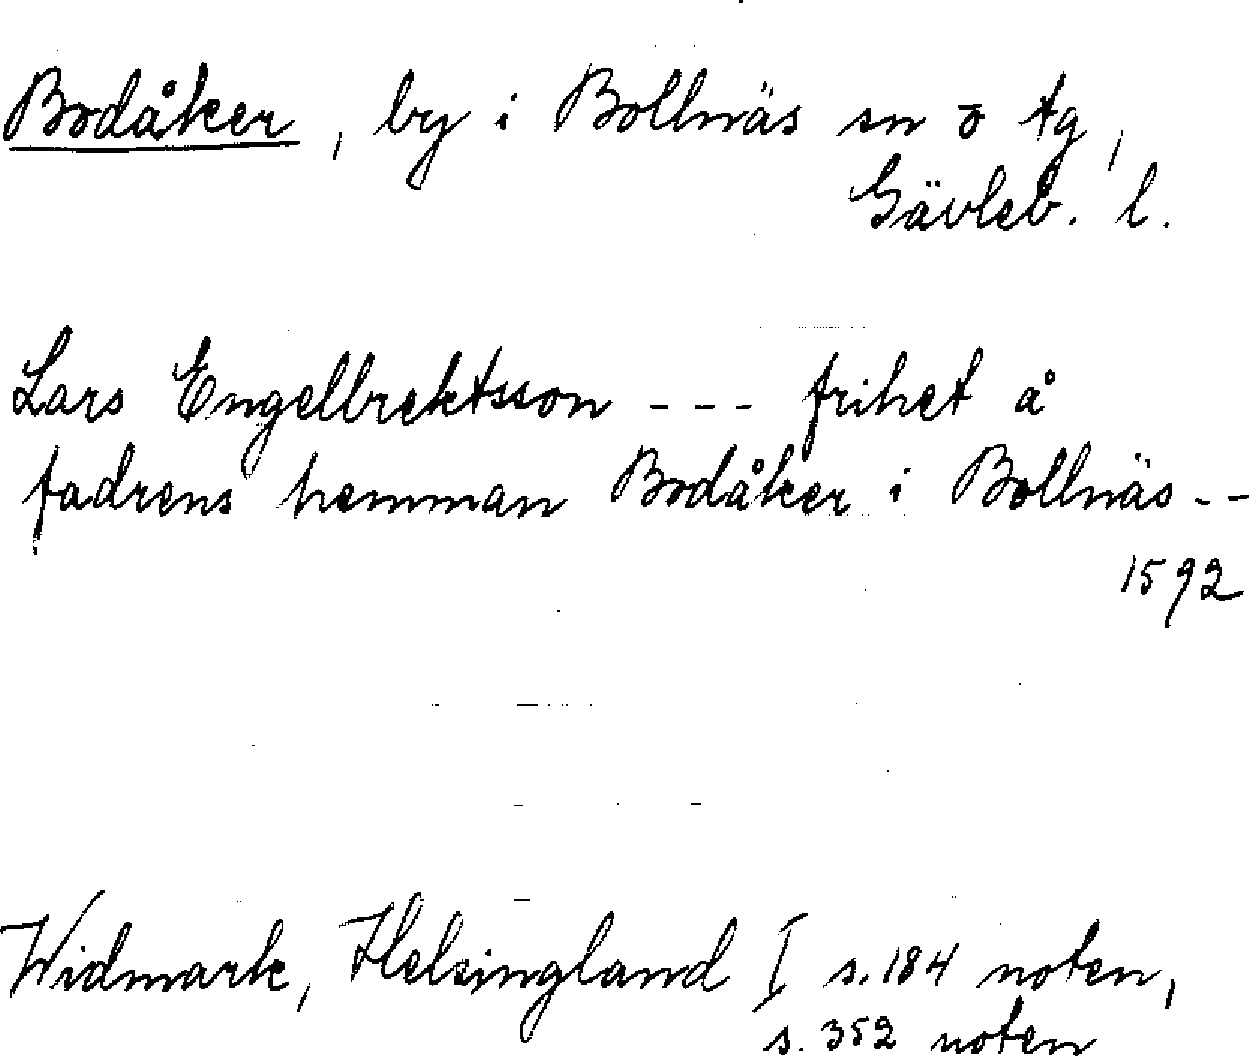 Bodåker, by i Bollnäs sn o tg,
Gävleb. l.
Lars Engelbrektsson --- frihet å
fadrens hemman Bodåker i Bollnäs --
1592
Widmark, Helsingland I s. 184 noten,
s. 352 noten